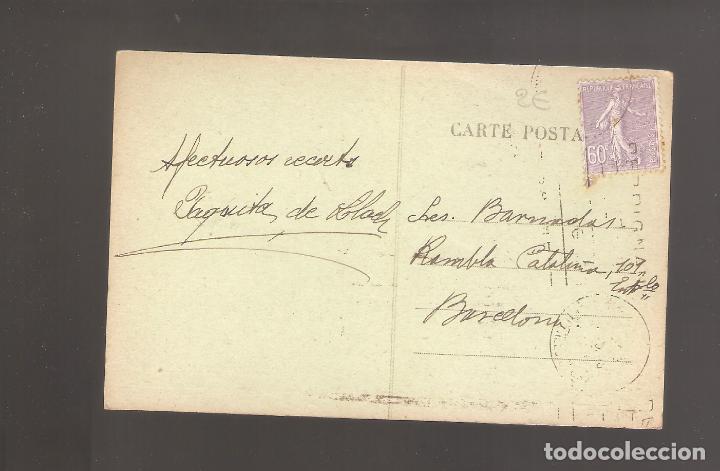 2E
CARTE POSTA
REPUBLIQUE FRANÇAISE
60c
Afectuosos recorts
Paquita de Llach
Sres. Barnadas.
Rambla Cataluña, 107,,
Entlo
Barcelona
todocoleccion